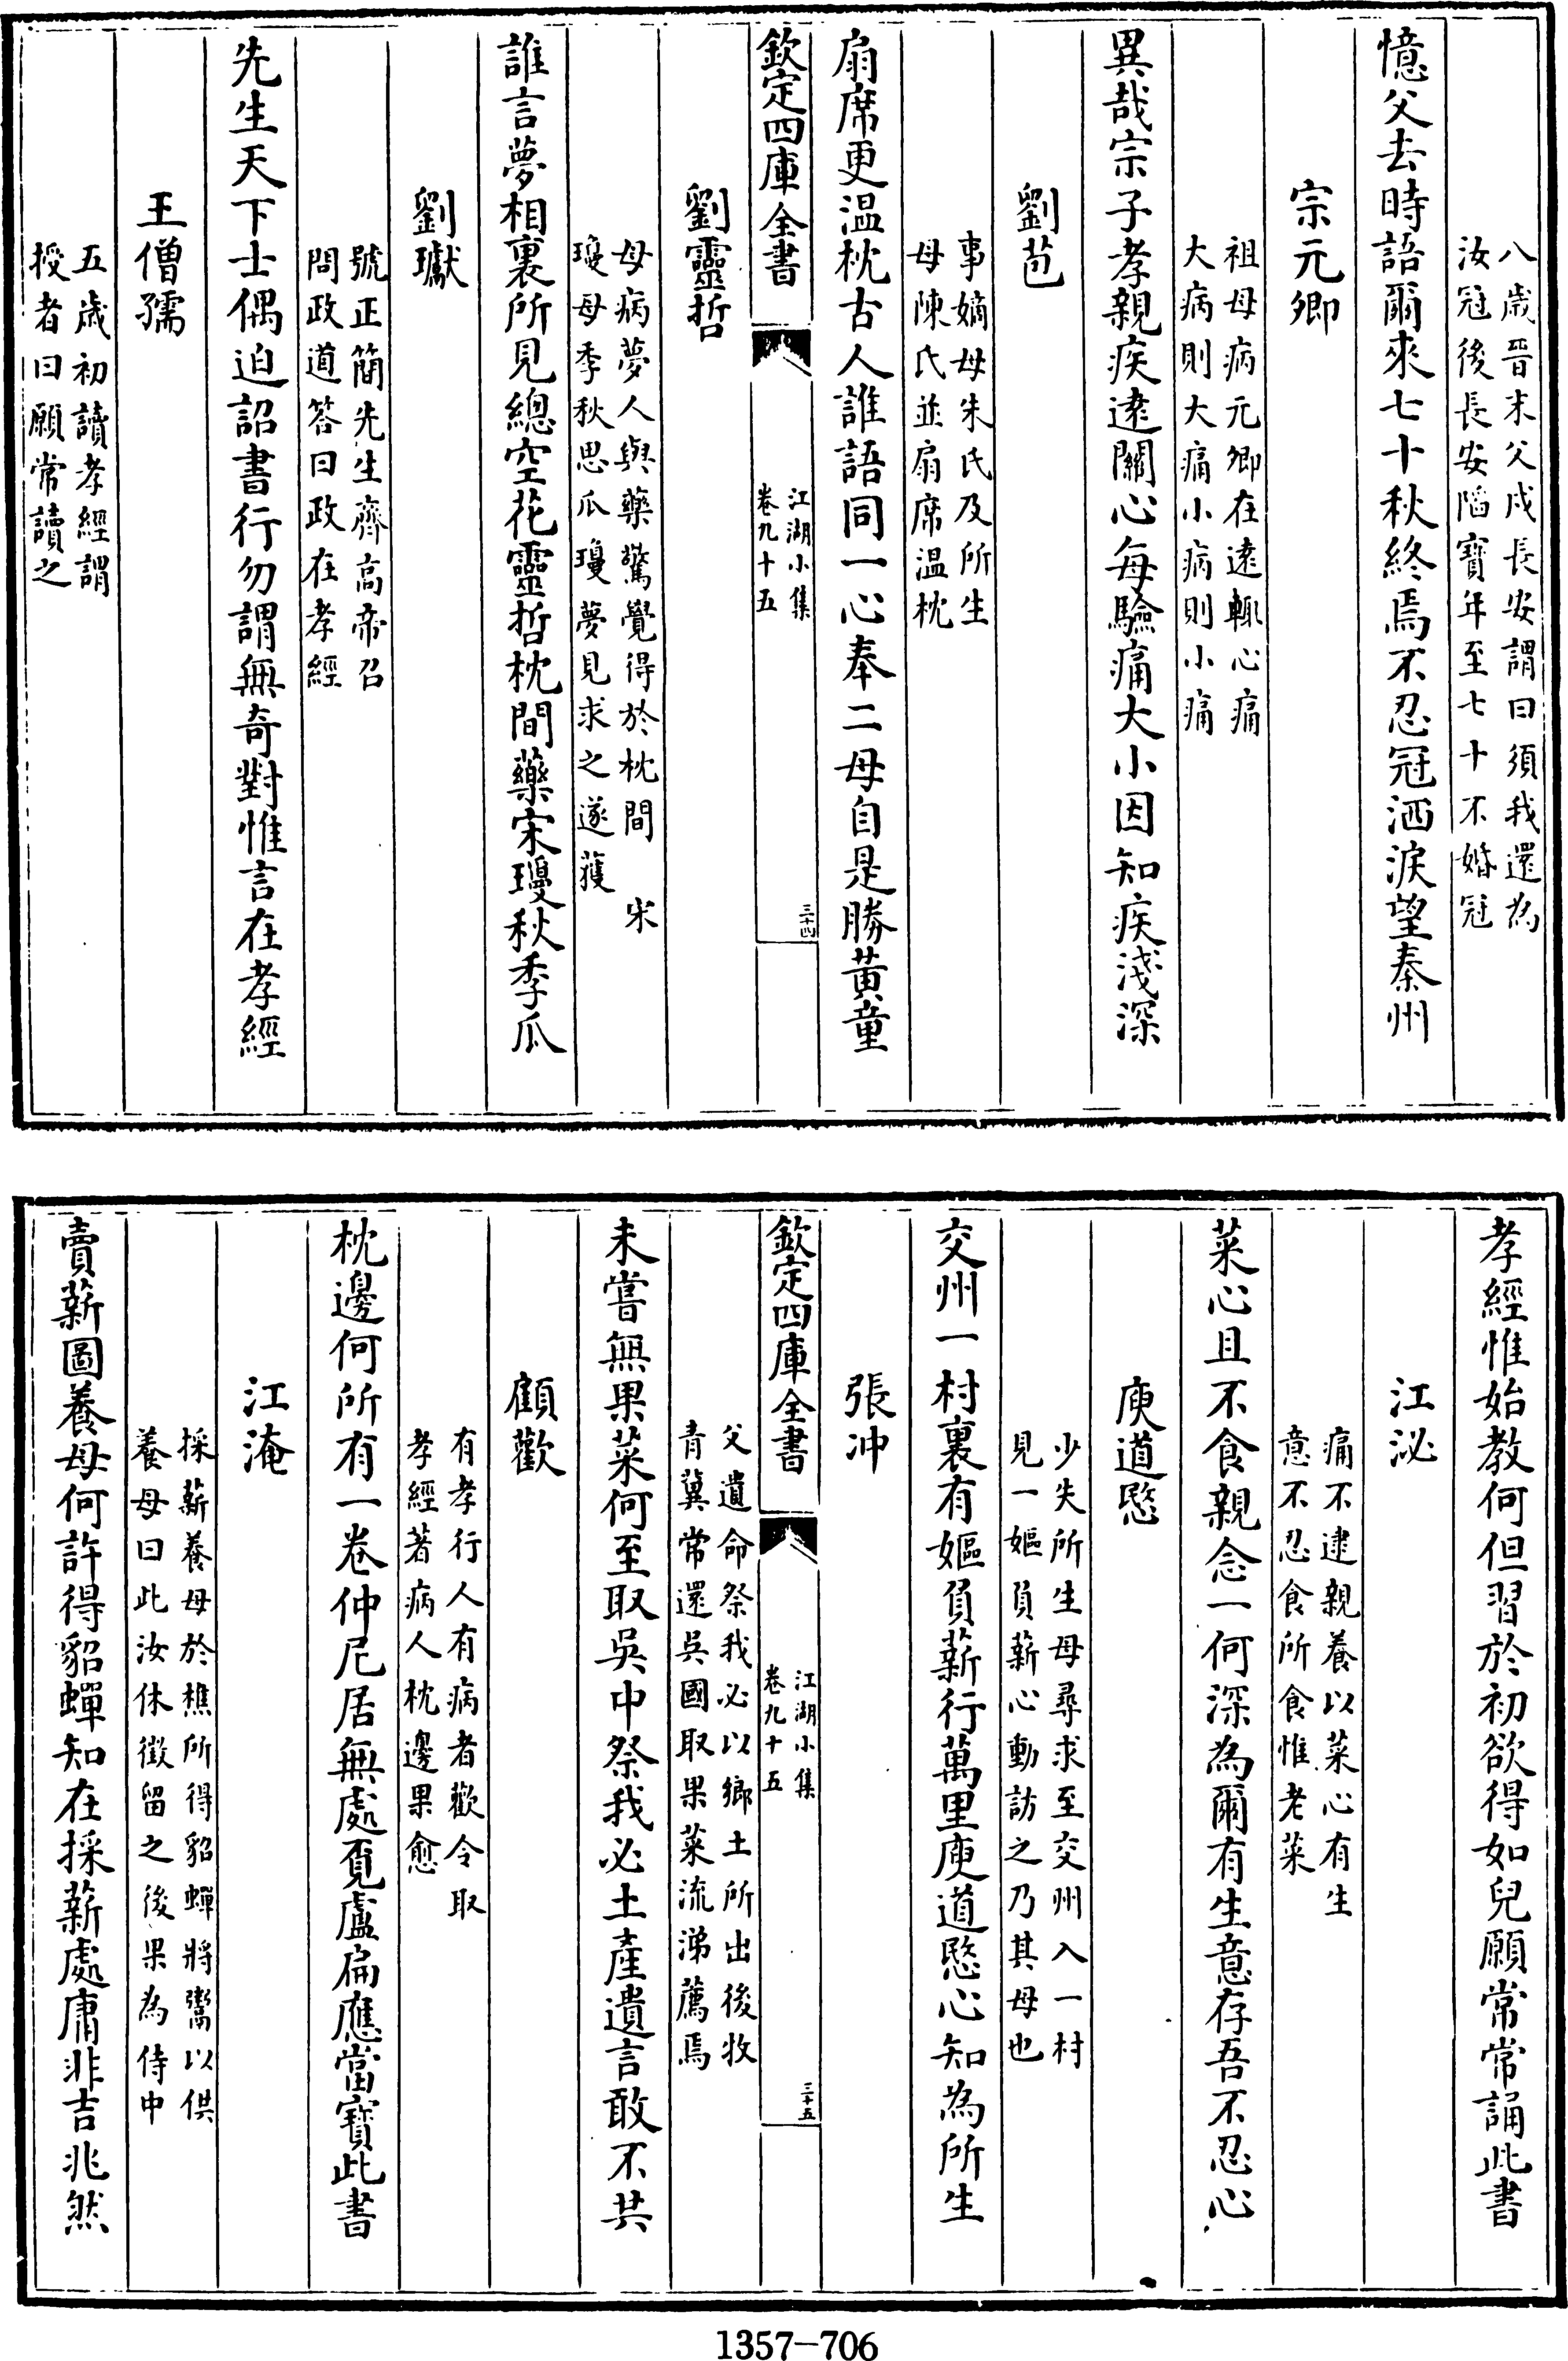 八歳晉末父戍長安謂曰須我還為
汝冠後長安陷寶年至七十不婚冠
憶父去時語爾來七十秋終焉不忍冠洒淚望秦州
宗元卿
祖母病元卿在遠輒心痛
大病則大痛小病則小痛
異哉宗子孝親疾逺關心每驗痛大小因知疾淺深
劉苞
事嫡母朱氏及所生
母陳氏並扇席温枕
扇席更温枕古人誰語同一心奉二母自是勝黃童
欽定四庫全書
江湖小集
卷九十五
三十四
劉靈哲
母病夢人與藥驚覺得於枕間 宋
瓊母季秋思瓜瓊夢見求之遂獲
誰言夢相裏所見總空花靈哲枕間藥宋瓊秋季瓜
劉瓛
號正簡先生齊高帝召
問政道答曰政在孝經
先生天下士偶迫詔書行勿謂無奇對惟言在孝經
王僧孺
五歳初讀孝經謂
授者曰願常讀之
孝經惟始教何但習於初欲得如兒願常常誦此書
江泌
痛不逮親養以菜心有生
意不忍食所食惟老菜
菜心且不食親念一何深為爾有生意存吾不忍心
庾道愍
少失所生母尋求至交州入一村
見一嫗負薪心動訪之乃其母也
交州一村裏有嫗負薪行萬里庾道愍心知為所生
張冲
欽定四庫全書
江湖小集
卷九十五
三十五
父遺命祭我必以鄉土所出後牧
青冀常還吳國取果菜流涕薦焉
未嘗無果菜何至取吳中祭我必土產遺言敢不共
顧歡
有孝行人有病者歡令取
孝經著病人枕邊果愈
枕邊何所有一卷仲尼居無處覓盧扁應當寶此書
江淹
採薪養母於樵所得貂蟬將鬻以供
養母曰此汝休徵留之後果為侍中
賣薪圖養母何許得貂蟬知在採薪處庸非吉兆然
1357-706